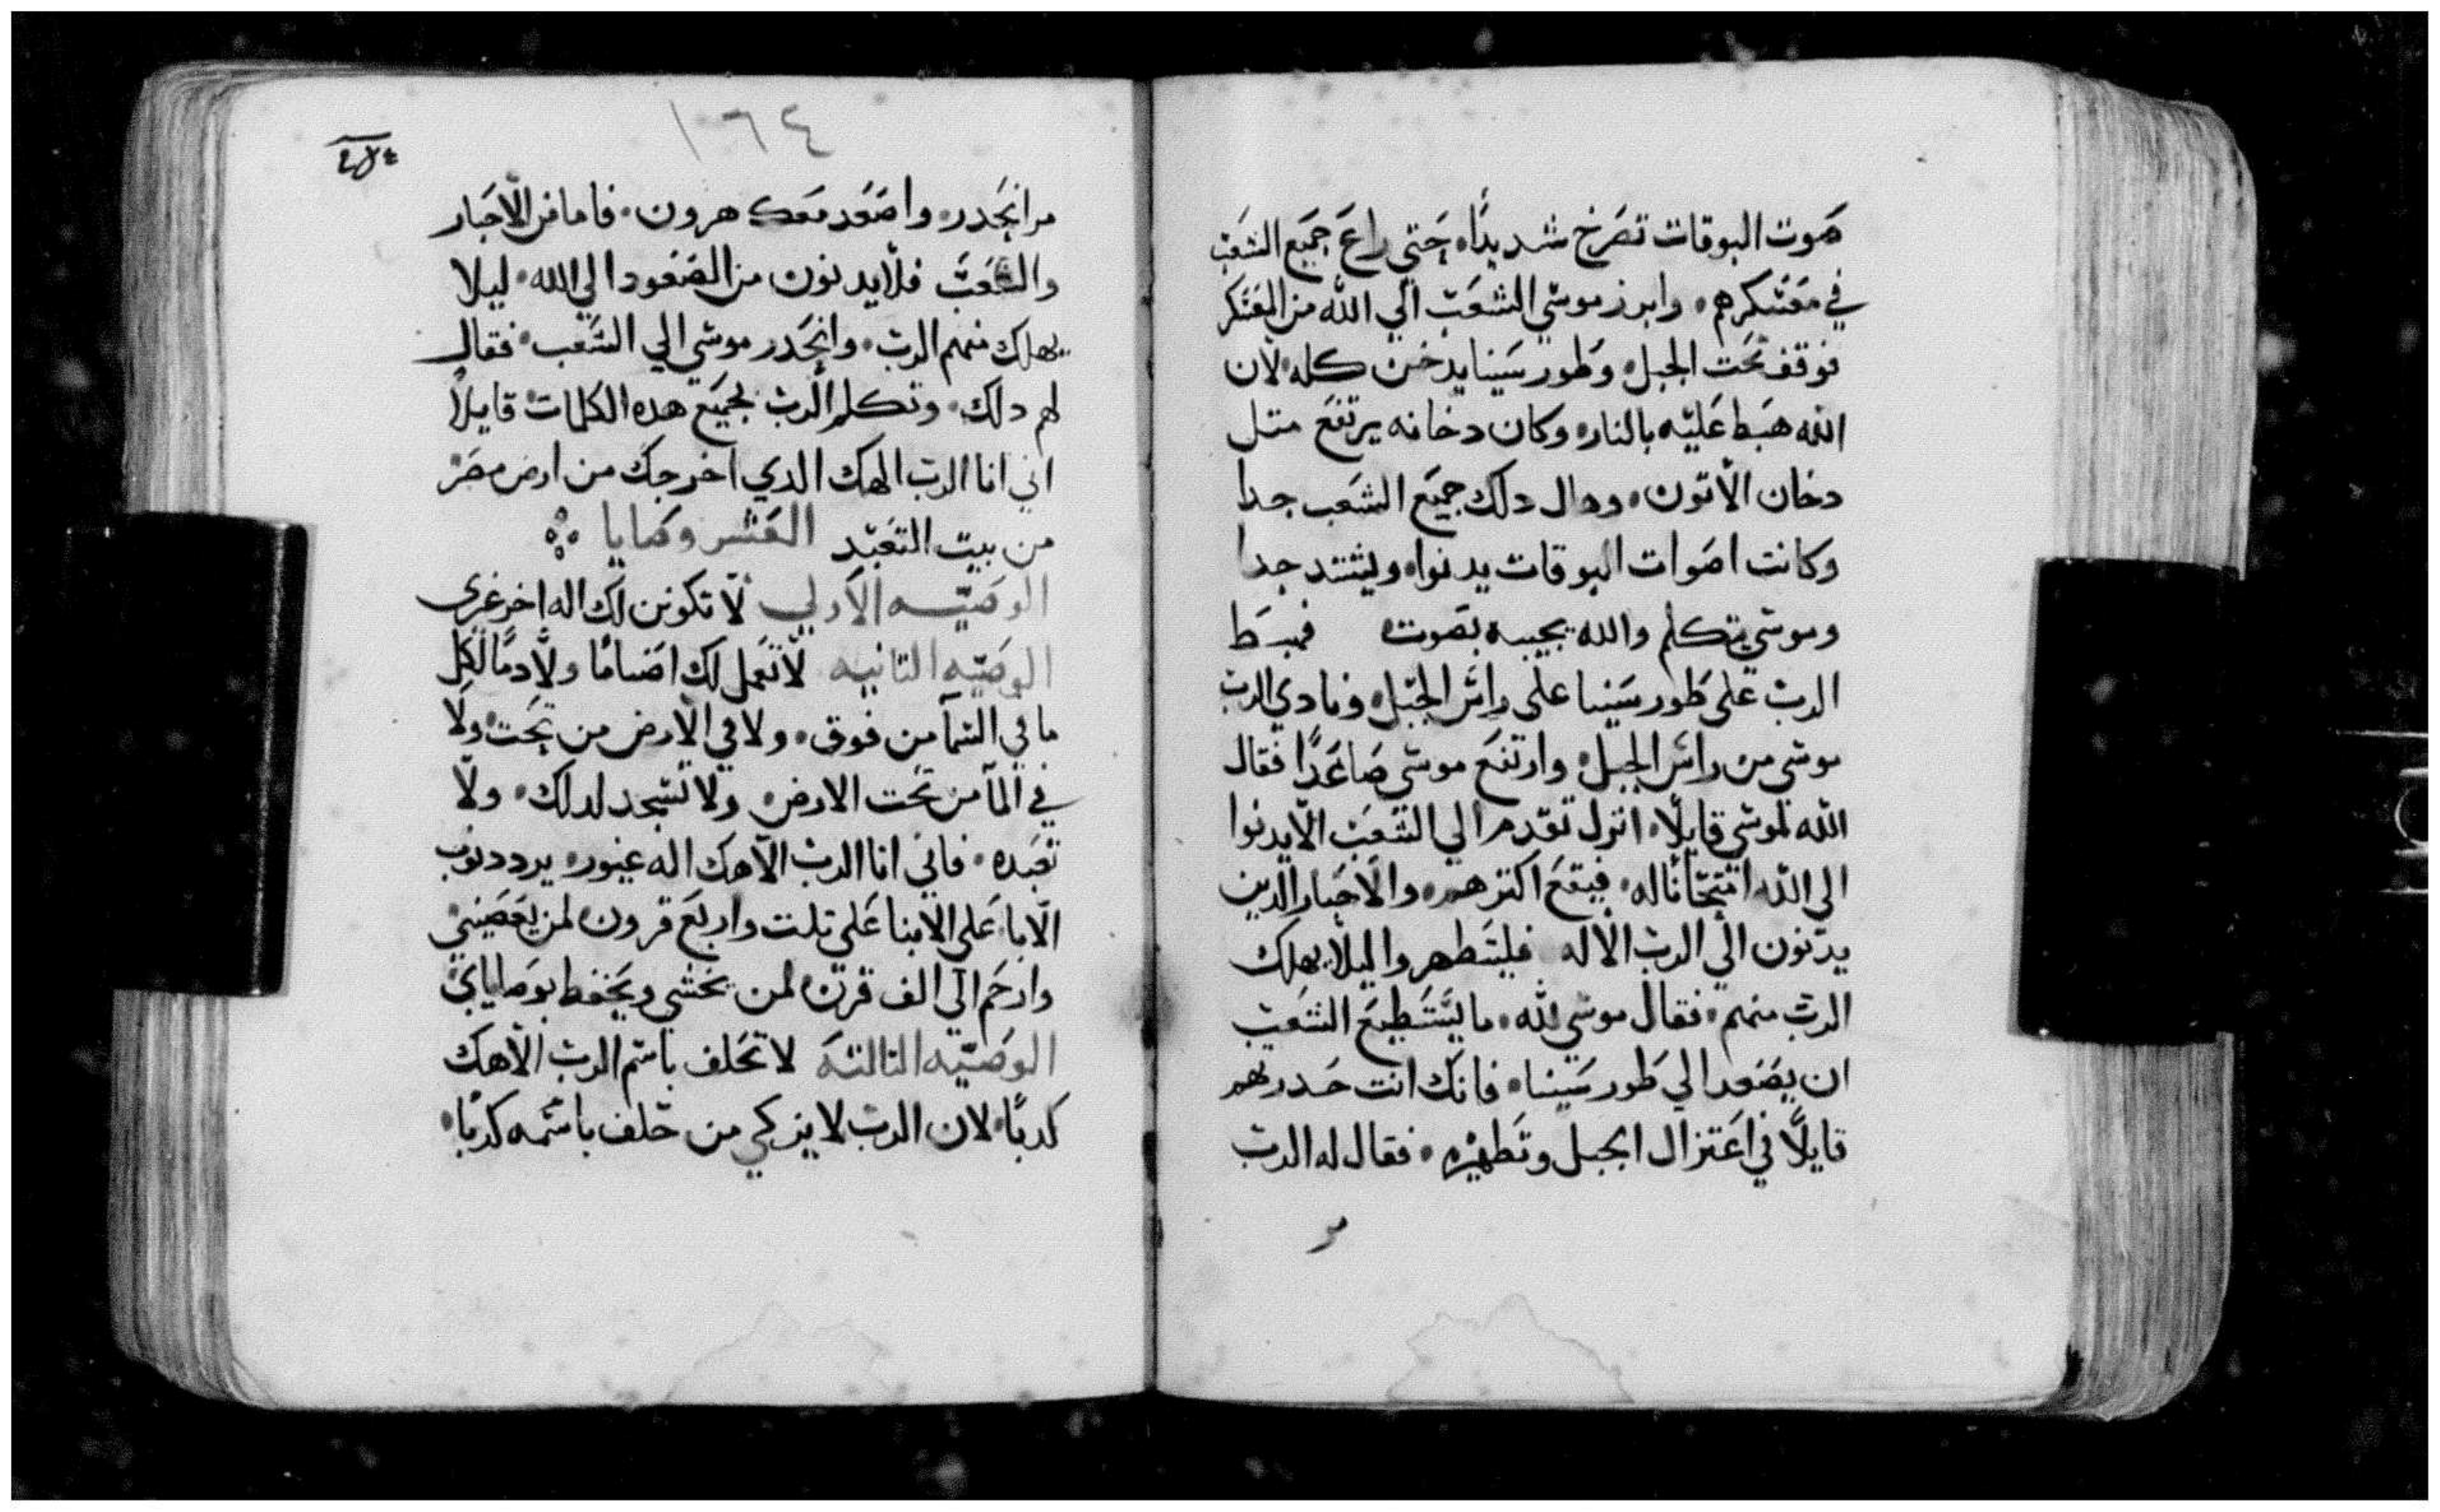 صوت البوقات تصرخ شديدًا، حتي راع جميع الشعب
في معسكرهم. وابرز موسي الشعب الي الله من المعسكر
فوقف تحت الجبل. وطور سينا يدخن كله لان
الله هبط عليه بالنار. وكان دخانه يرتفع متل
دخان الاتون. وهال دلك جميع الشعب جدا
وكانت اصوات البوقات يدنوا. ويشتد جدا
وموسي يتكلم والله يجيبه بصوت فهبط
الرب علي طور سينا علي راس الجبل. ونادي الرب
موسي من راس الجبل. وارتفع موسي صاعدًا فقال
الله لموسي قايلًا. انزل تقدم الي الشعب الا يدنوا
الي الله امتحانًا له. فيقع اكترهم. والاحبار الدين
يدنون الي الرب الاله فليتطهروا ليلا يهلك
الرب منهم. فقال موسي لله. ما يستطيع الشعب
ان يصعد الي طور سينا. فانك انت حدرتهم
قايلًا في اعتزال الجبل وتطهيره. فقال له الرب
مر
١٦٤
مر انحدر. واصعد معك هرون. فاما من الاحبار
والشعب فلا يدنون من الصعود الي الله. ليلا
يهلك منهم الرب. وانحدر موسي الي الشعب. فقال
لهم دلك. وتكلم الرب بجميع هده الكلمات قايلًا
اني انا الرب الهك الدي اخرجك من ارض مصر
من بيت التعبد العشر وصايا
الوصيه الاولي لا تكونن لك اله اخر غيري
الوصيه التانيه لا تعمل لك اصنامًا ولا دمًا لكل
ما في السمآ من فوق. ولا في الارض من تحت ولا
في المآ من تحت الارض. ولا تسجد لدلك. ولا
تعبده. فاني انا الرب الاهك اله غيور. يردد دنوب
الابا علي الابنا علي تلت واربع قرون لمن يعصيني
وارحم الي الف قرن لمن يخشي ويحفظ بوصاياي
الوصيه التالته لا تحلف باسم الرب الاهك
كدبًا. لان الرب لا يزكي من حلف باسمه كدبًا.